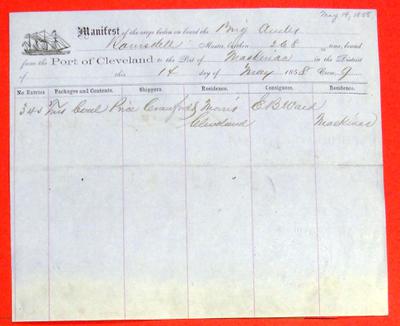 May 14, 1858
Manifest of the cargo taken on board the Brig
Ramsdell Master, burthen 268 tons, bound
from the Port of Cleveland to the Port of Mackinac in the District
of this 14 day of May 1858 Crew 9
No Entries Packages and Contents. Shippers. Residence. Consignees. Residence.
345 Tons Coal Price Crawford & Morris E B Ward
Cleveland Mackinac